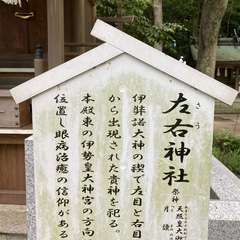 左右神社
さう
祭神
天照皇大
月讀
伊弉諾大神の禊で左目と右目
から出現された貴神を祀る。
本殿東の伊勢皇大神宮の方向
位置し眼病治癒の信仰がある